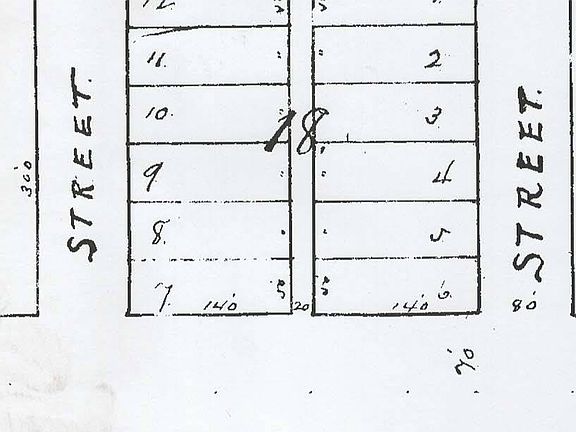 12
11. 2
STREET.
10. 3
18
STREET.
300
9 4
8. 5
7 140 20 140 6 80
70